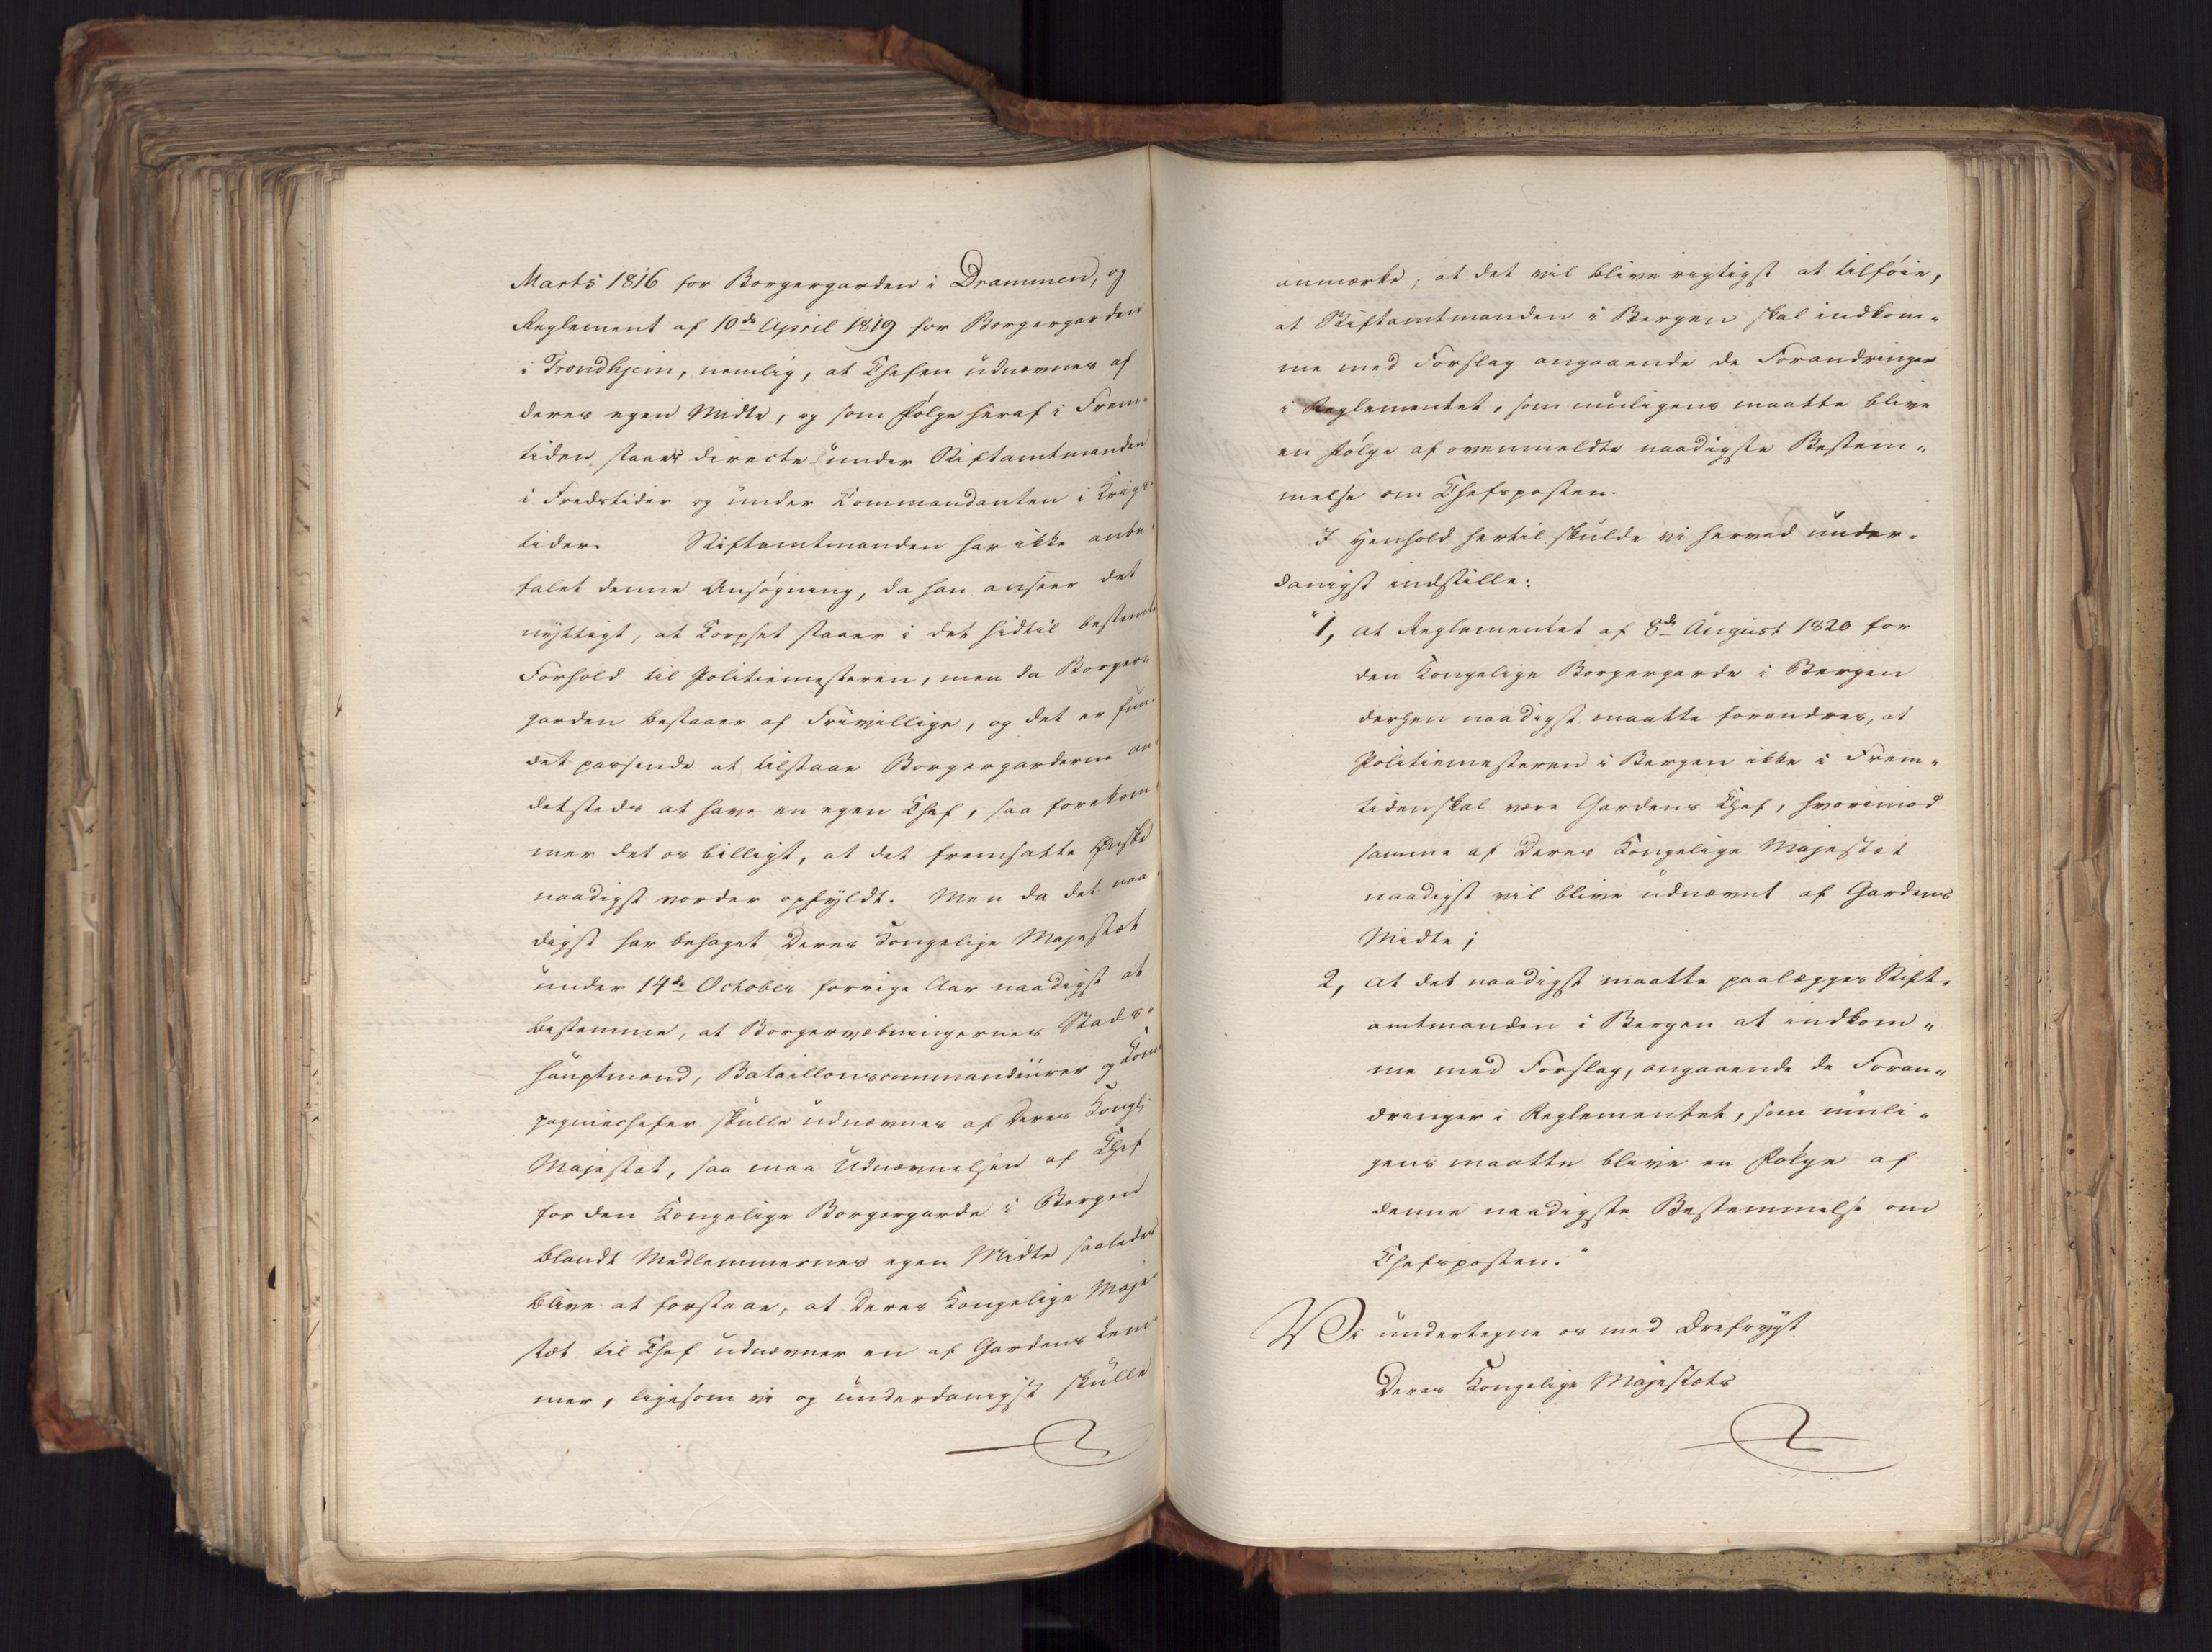 Marts 1816 for Borgergarden i Drammen, og
Reglement af 10de April 1819 for Borgergarden
i Trondhjem, nemlig, at Chefen udnævnes af
deres egen Midte, og som Følge heraf i Frem-
tiden staaer directe under Stiftamtmanden
i Fredstider og under Kommandanten i Krigs-
tider. Stiftamtmanden har ikke anbe-
falet denne Ansøgning, da han anseer det
nyttigt, at Korpset staaer i det hidtil bestemte
Forhold til Politiemesteren, men da Borger-
garden bestaaer af Frivillige, og det er fun-
det passende at tilstaae Borgergarderne an-
detsteds at have en egen Chef, saa forekom-
mer det os billigt, at det fremsatte Ønske
naadigst vorder opfyldt. Men da det naa-
digst har behaget Deres Kongelige Majestæt
under 14de October forrige Aar naadigst at
bestemme, at Borgervæbningernes Stads-
hauptmænd, Bataillonscommandeurer og Kom-
pagniechefer skulle udnævnes af Deres Kongl:
Majestæt, saa maa Udnævnelsen af Chef
for den Kongelige Borgergarde i Bergen
blandt Medlemmernes egen Midte saaledes
blive at forstaae, at Deres Kongelige Maje-
stæt til Chef udnævner en af Gardens Lem-
mer, ligesom vi og underdanigst skulle
anmærke, at det vil blive rigtigst at tilføie,
at Stiftamtmanden i Bergen skal indkom-
me med Forslag angaaende de Forandringer
i Reglementet, som muligens maatte blive
en Følge af ovenmeldte naadigste Bestem-
melse om Chefsposten.
I Henhold hertil skulde vi herved under-
danigst indstille:
"1, at Reglementet af 8de August 1820 for
den Kongelige Borgergarde i Bergen
derhen naadigst maatte forandres, at
Politiemesteren i Bergen ikke i Frem-
tiden skal være Gardens Chef, hvorimod
samme af Deres Kongelige Majestæt
naadigst vil blive udnævnt af Gardens
Midte;
2, at det naadigst maatte paalægges Stift-
amtmanden i Bergen at indkom-
me med Forslag, angaaende de Foran-
dringer i Reglementet, som muli-
gens maatte blive en Følge af
denne naadigste Bestemmelse om
Chefsposten."
Vi undertegne os med Ærefrygt
Deres Kongelige Majestæts